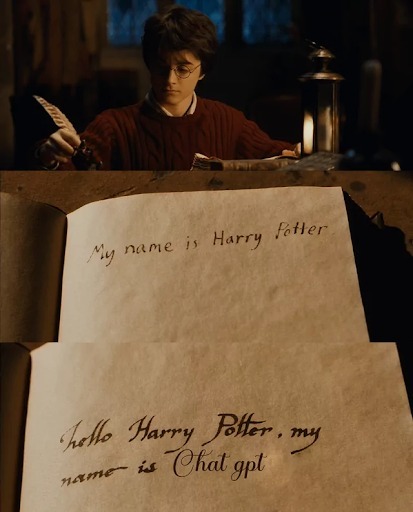 My name is Harry Potter
hello Harry Potter. my
name is Chat gpt